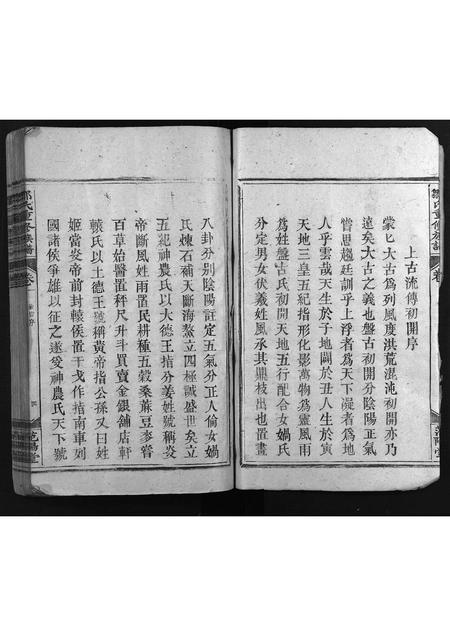 上古流傳初開序
蒙匕大古為列風度洪荒混沌初開亦乃
遠矣大古之義也盤古初開分陰陽正氣
嘗思趨廷訓乎上浮者為天下凝者為地
人乎雲哉天生於子地闢於丑人生於寅
天地三皇五紀指形化影萬物為靈風雨
為姓盤古氏初開天地五行配合女媧氏
分定男女伏羲姓風承其鼎枝出也置畫
八卦分別陰陽註定五氣分正人倫女媧
氏煉石補天斷海鰲立四極誠盛世矣立
五紀神農氏以大德王指分姜姓號稱炎
帝斷風姓雨置民耕種五穀桑蔴豆麥嘗
百草始醫置秤尺升斗買賣金銀舖店軒
轅氏以土德王號稱黃帝指公孫又曰姓
姬當炎帝前封轅侯置干戈作指南車刻
國諸侯爭雄以征之遂爰神農氏天下號
鄒氏重修族譜
卷
四
范陽堂
鄒氏重修族譜
卷
范陽堂